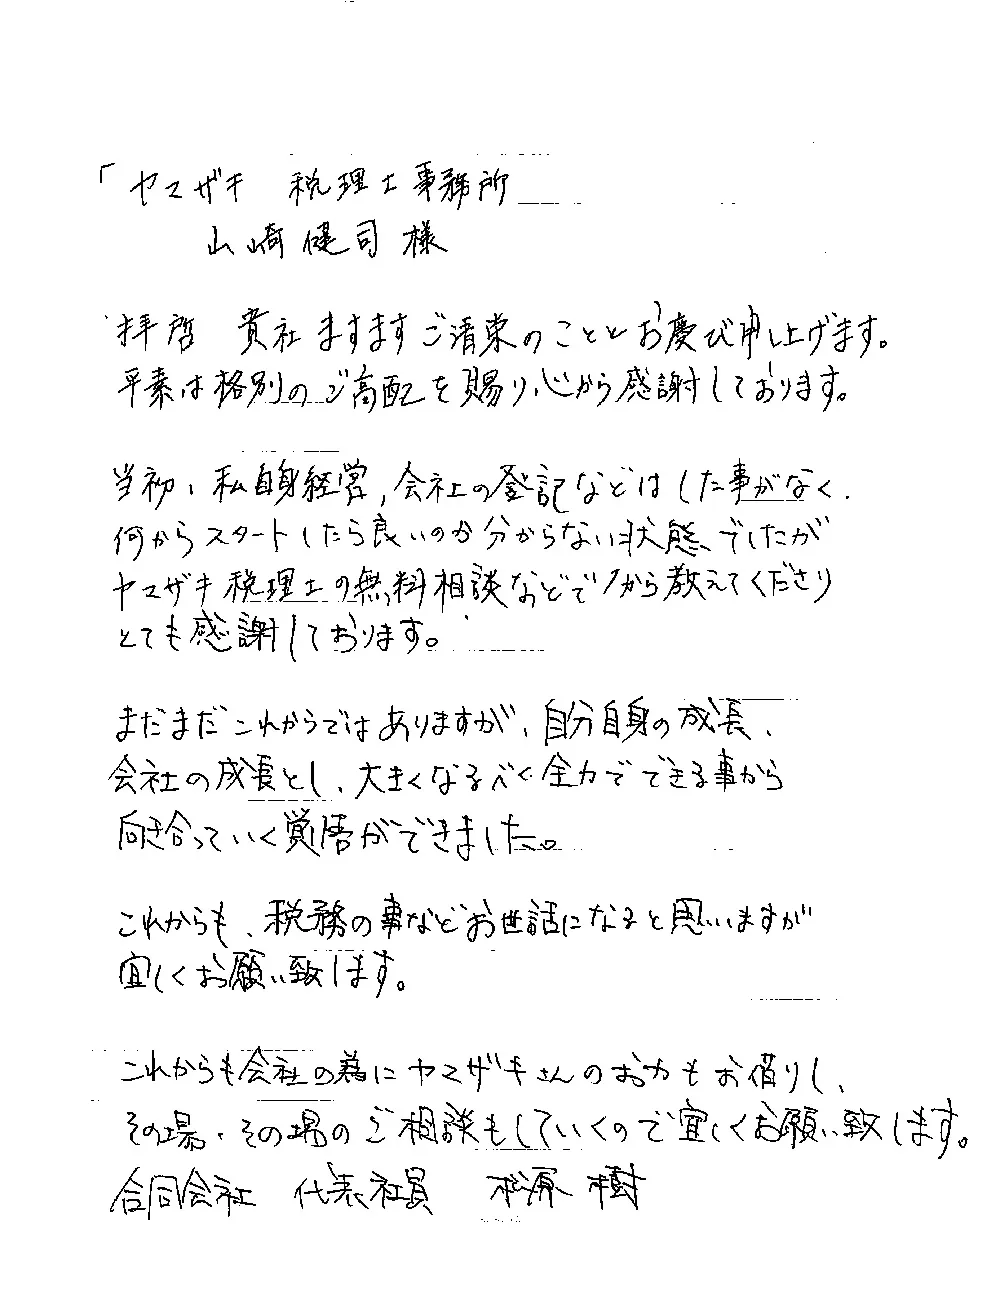 「ヤマザキ 税理士事務所
山崎健司様
拝啓 貴社ますますご清栄のこととお慶び申し上げます。
平素は格別のご高配を賜り、心から感謝しております。
当初、私自身経営,会社の登記などはした事がなく、
何からスタートしたら良いのか分からない状態でしたが
ヤマザキ税理士の無料相談などで1から教えてくださり
とても感謝しております。
まだまだこれからではありますが、自分自身の成長、
会社の成長とし、大きくなるべく全力でできる事から
向き合っていく覚悟ができました。
これからも、税務の事などお世話になると思いますが
宜しくお願い致します。
これからも会社の為にヤマザキさんのお力もお借りし、
その場、その場のご相談もしていくので宜しくお願い致します。
合同会社 代表社員 松原 樹